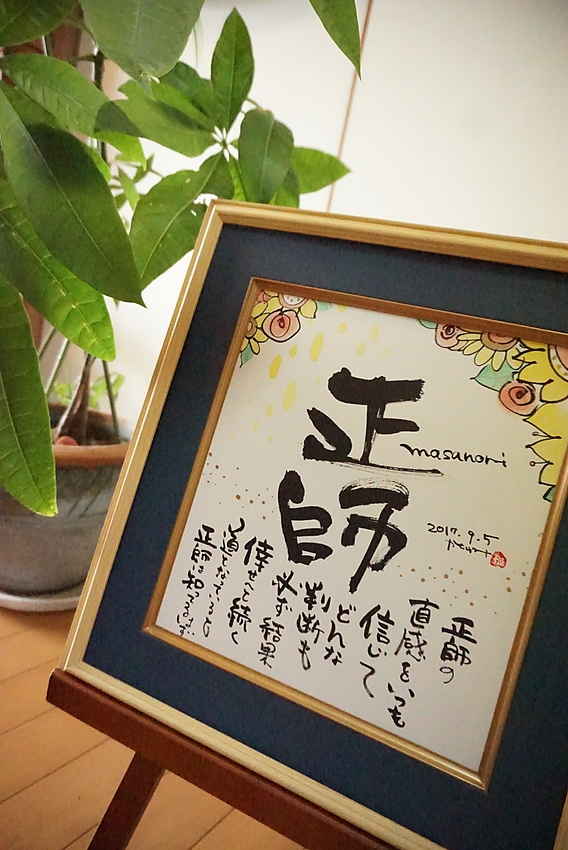 正師
masunori
2017.9.5
正師の
直感をいつも
信じて
どんな
判断も
必ず結果
倖せと続く
道となっていると
正師は知っているはず